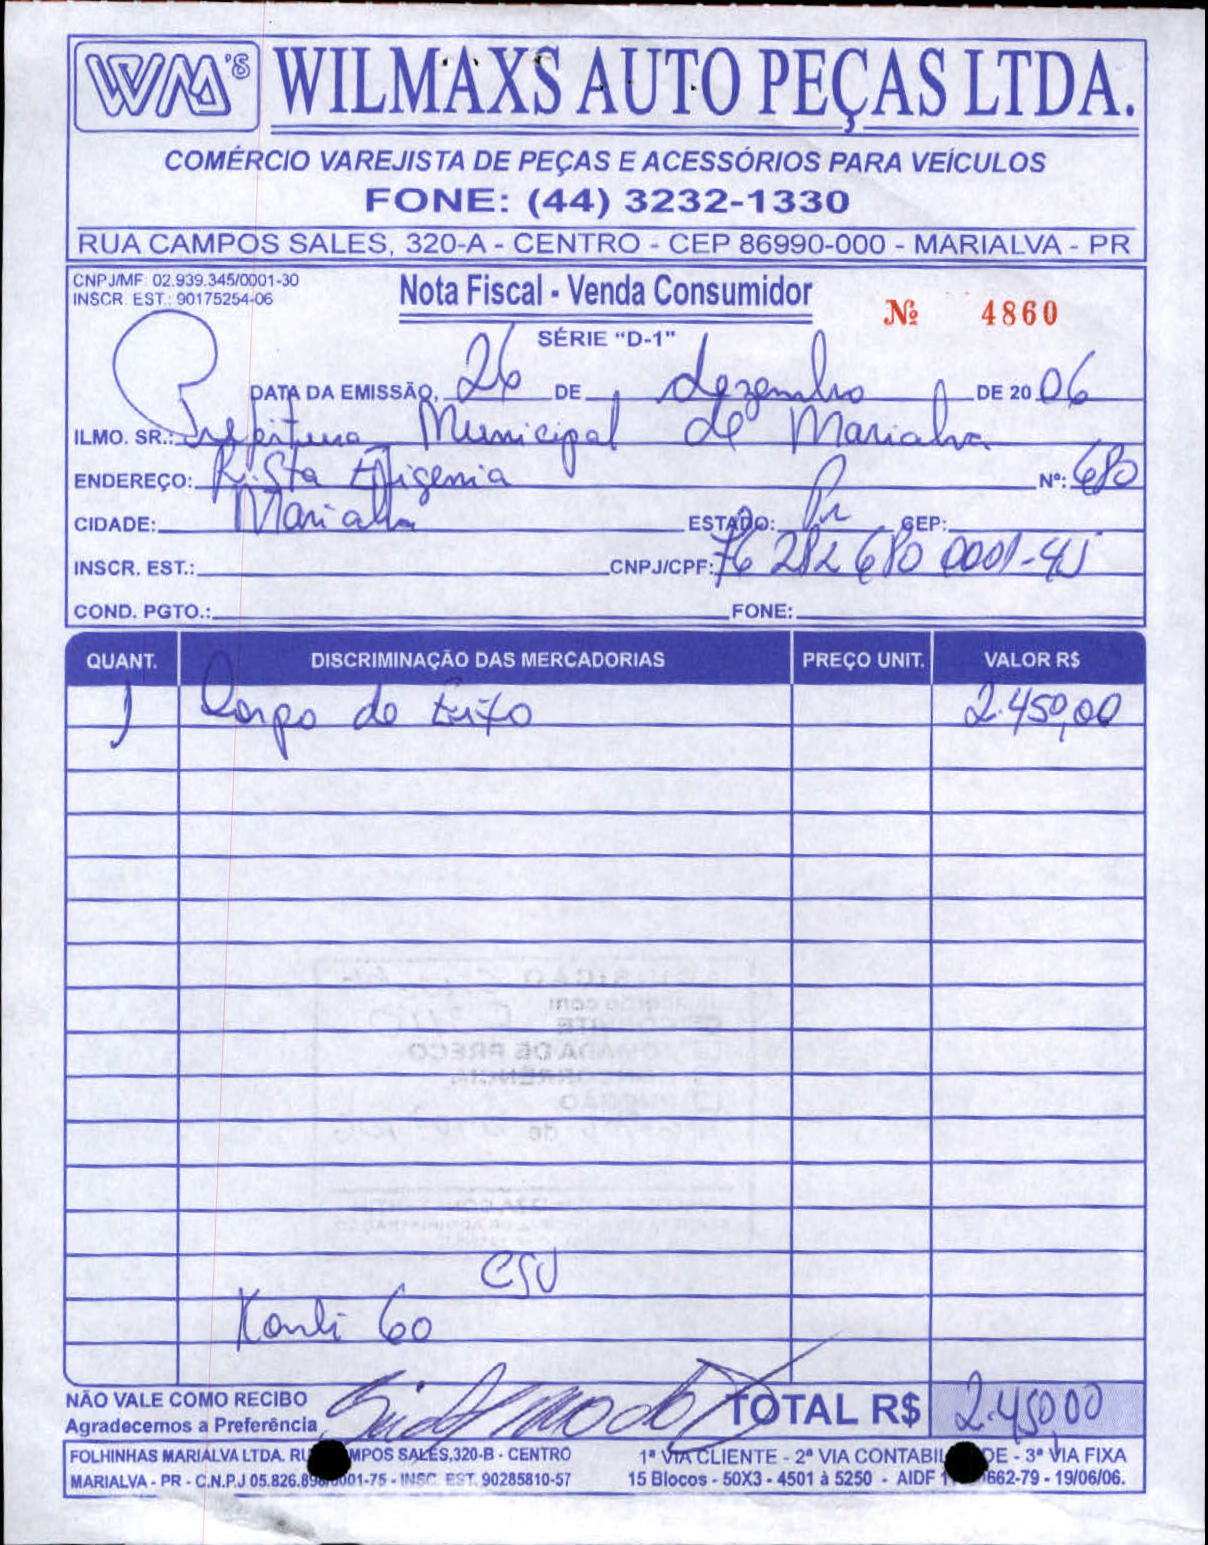 WM'S WILMAXS AUTO PEÇAS LTDA.
COMÉRCIO VAREJISTA DE PEÇAS E ACESSÓRIOS PARA VEÍCULOS
FONE: (44) 3232-1330
RUA CAMPOS SALES, 320-A - CENTRO - CEP 86990-000 - MARIALVA - PR
CNPJ/MF: 02.939.345/0001-30
INSCR. EST.: 90175254-06
Nota Fiscal - Venda Consumidor
Nº 4860
SÉRIE "D-1"
DATA DA EMISSÃO, 26 DE dezembro DE 20 06
ILMO. SR.: Prefeitura Municipal de Marialva
ENDEREÇO: R. Sta Efigenia Nº: 680
CIDADE: Marialva ESTADO: Pr CEP:
INSCR. EST.: CNPJ/CPF: 76 282 680 0001-45
COND. PGTO.: FONE:
QUANT. DISCRIMINAÇÃO DAS MERCADORIAS PREÇO UNIT. VALOR R$
1 Corpo de Eixo 2.450,00
Kombi 60
NÃO VALE COMO RECIBO
Agradecemos a Preferência
TOTAL R$ 2.450,00
FOLHINHAS MARIALVA LTDA. MPOS SALES,320-B - CENTRO
MARIALVA - PR - C.N.P.J 05.826. 0001-75 - INSC. EST. 90285810-57
1ª VIA CLIENTE - 2ª VIA CONTABIL DE - 3ª VIA FIXA
15 Blocos - 50X3 - 4501 à 5250 - AIDF 662-79 - 19/06/06.